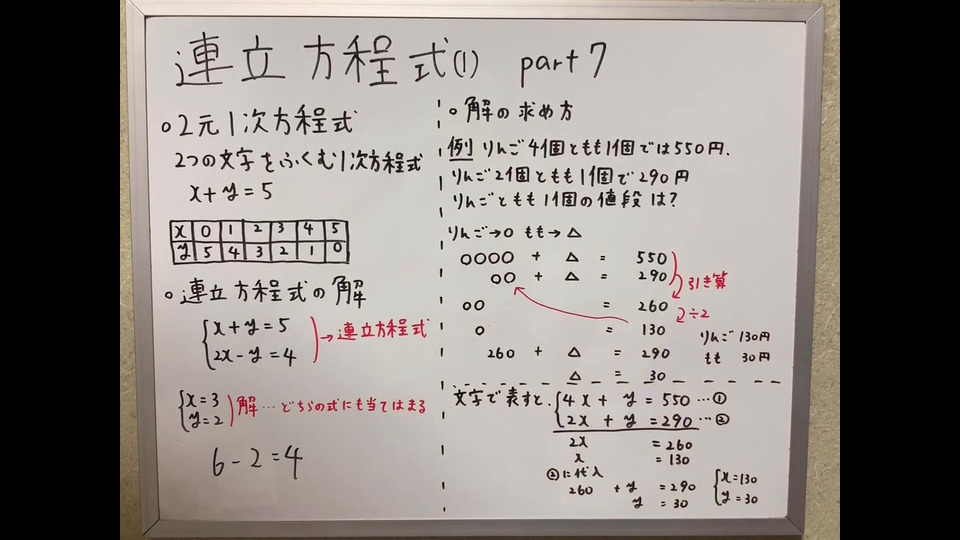 連立方程式(1) part7
○2元1次方程式
2つの文字をふくむ1次方程式
x+y=5
x 0 1 2 3 4 5
y 5 4 3 2 1 0
○連立方程式の解
x+y=5
2x-y=4
→連立方程式
x=3
y=2
解…どちらの式にも当てはまる
6-2=4
○解の求め方
例 りんご4個ともも1個では550円.
りんご2個ともも1個で290円
りんごともも1個の値段は?
りんご→○ もも→△
○○○○ + △ = 550
○○ + △ = 290
引き算
○○ = 260
÷2
○ = 130
260 + △ = 290
△ = 30
りんご 130円
もも 30円
文字で表すと.
4x + y = 550 …①
2x + y = 290 …②
2x = 260
x = 130
②に代入
260 + y = 290
y = 30
x=130
y=30